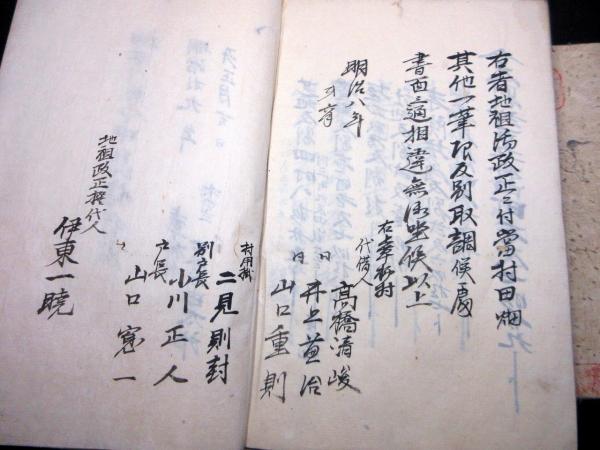 右者地租御改正ニ付當村田畑
其他一筆限反別取調候處
書面之通相違無御坐候以上
明治八年
右
代借人
高橋清峻
〃
井上
治
〃
山口重則
村用掛
二見則封
副戸長
小川正人
戸長
山口寛一
地租改正掛代人
伊東一暁